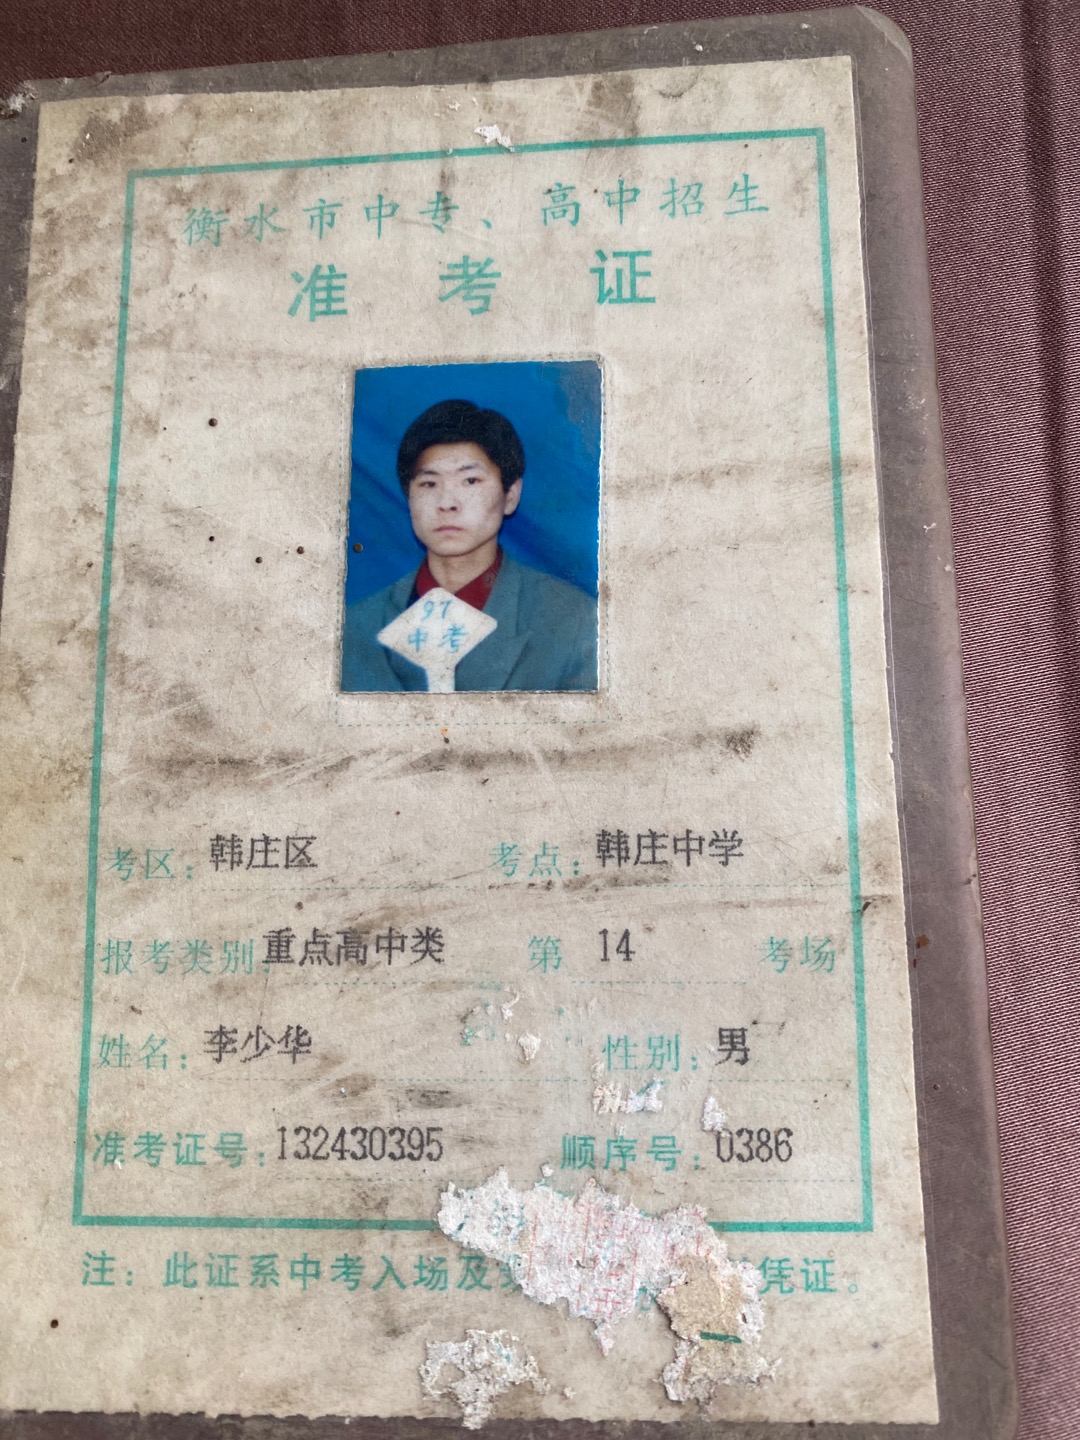 衡水市中专、高中招生
准考证
97
中考
考区：韩庄区 考点：韩庄中学
报考类别：重点高中类 第 14 考场
姓名：李少华 性别：男
准考证号：132430395 顺序号：0386
注：此证系中考入场及 凭证。